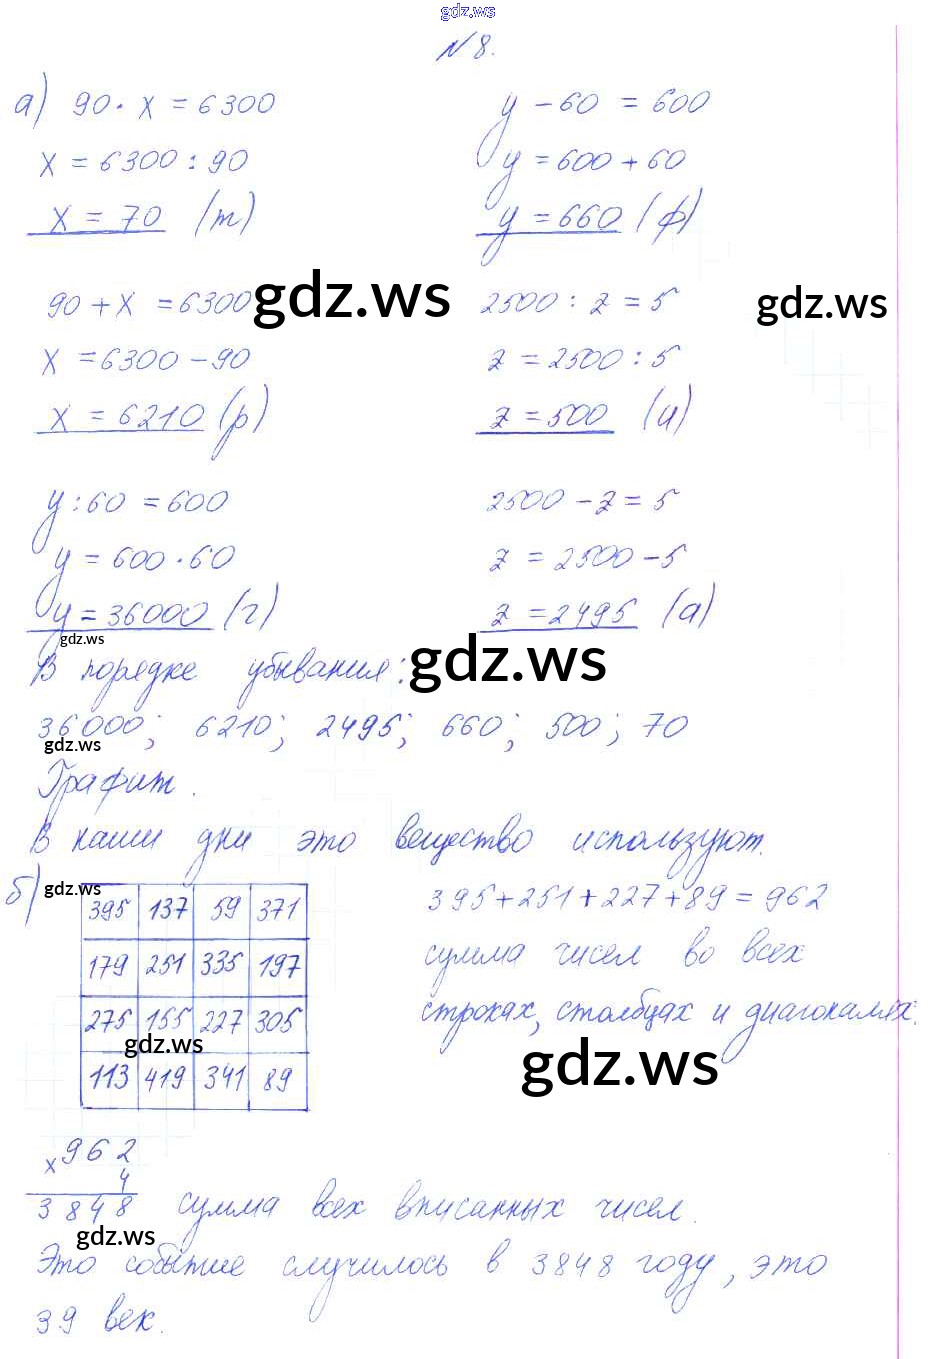 gdz.ws
№8.
а) 90 · x = 6300
x = 6300 : 90
x = 70 (т)
y - 60 = 600
y = 600 + 60
y = 660 (ф)
90 + x = 6300
x = 6300 - 90
x = 6210 (р)
gdz.ws
2500 : z = 5
z = 2500 : 5
z = 500 (и)
gdz.ws
y : 60 = 600
y = 600 · 60
y = 36000 (г)
gdz.ws
2500 - z = 5
z = 2500 - 5
z = 2495 (а)
В порядке убывания:
gdz.ws
36000; 6210; 2495; 660; 500; 70
gdz.ws
Графит.
В наши дни это вещество используют.
б)
gdz.ws
395 137 59 371
179 251 335 197
275 155 227 305
gdz.ws
113 419 341 89
395 + 251 + 227 + 89 = 962
сумма чисел во всех
строках, столбцах и диагоналях.
gdz.ws
x 962
4
3848 сумма всех вписанных чисел.
gdz.ws
Это событие случилось в 3848 году, это
39 век.